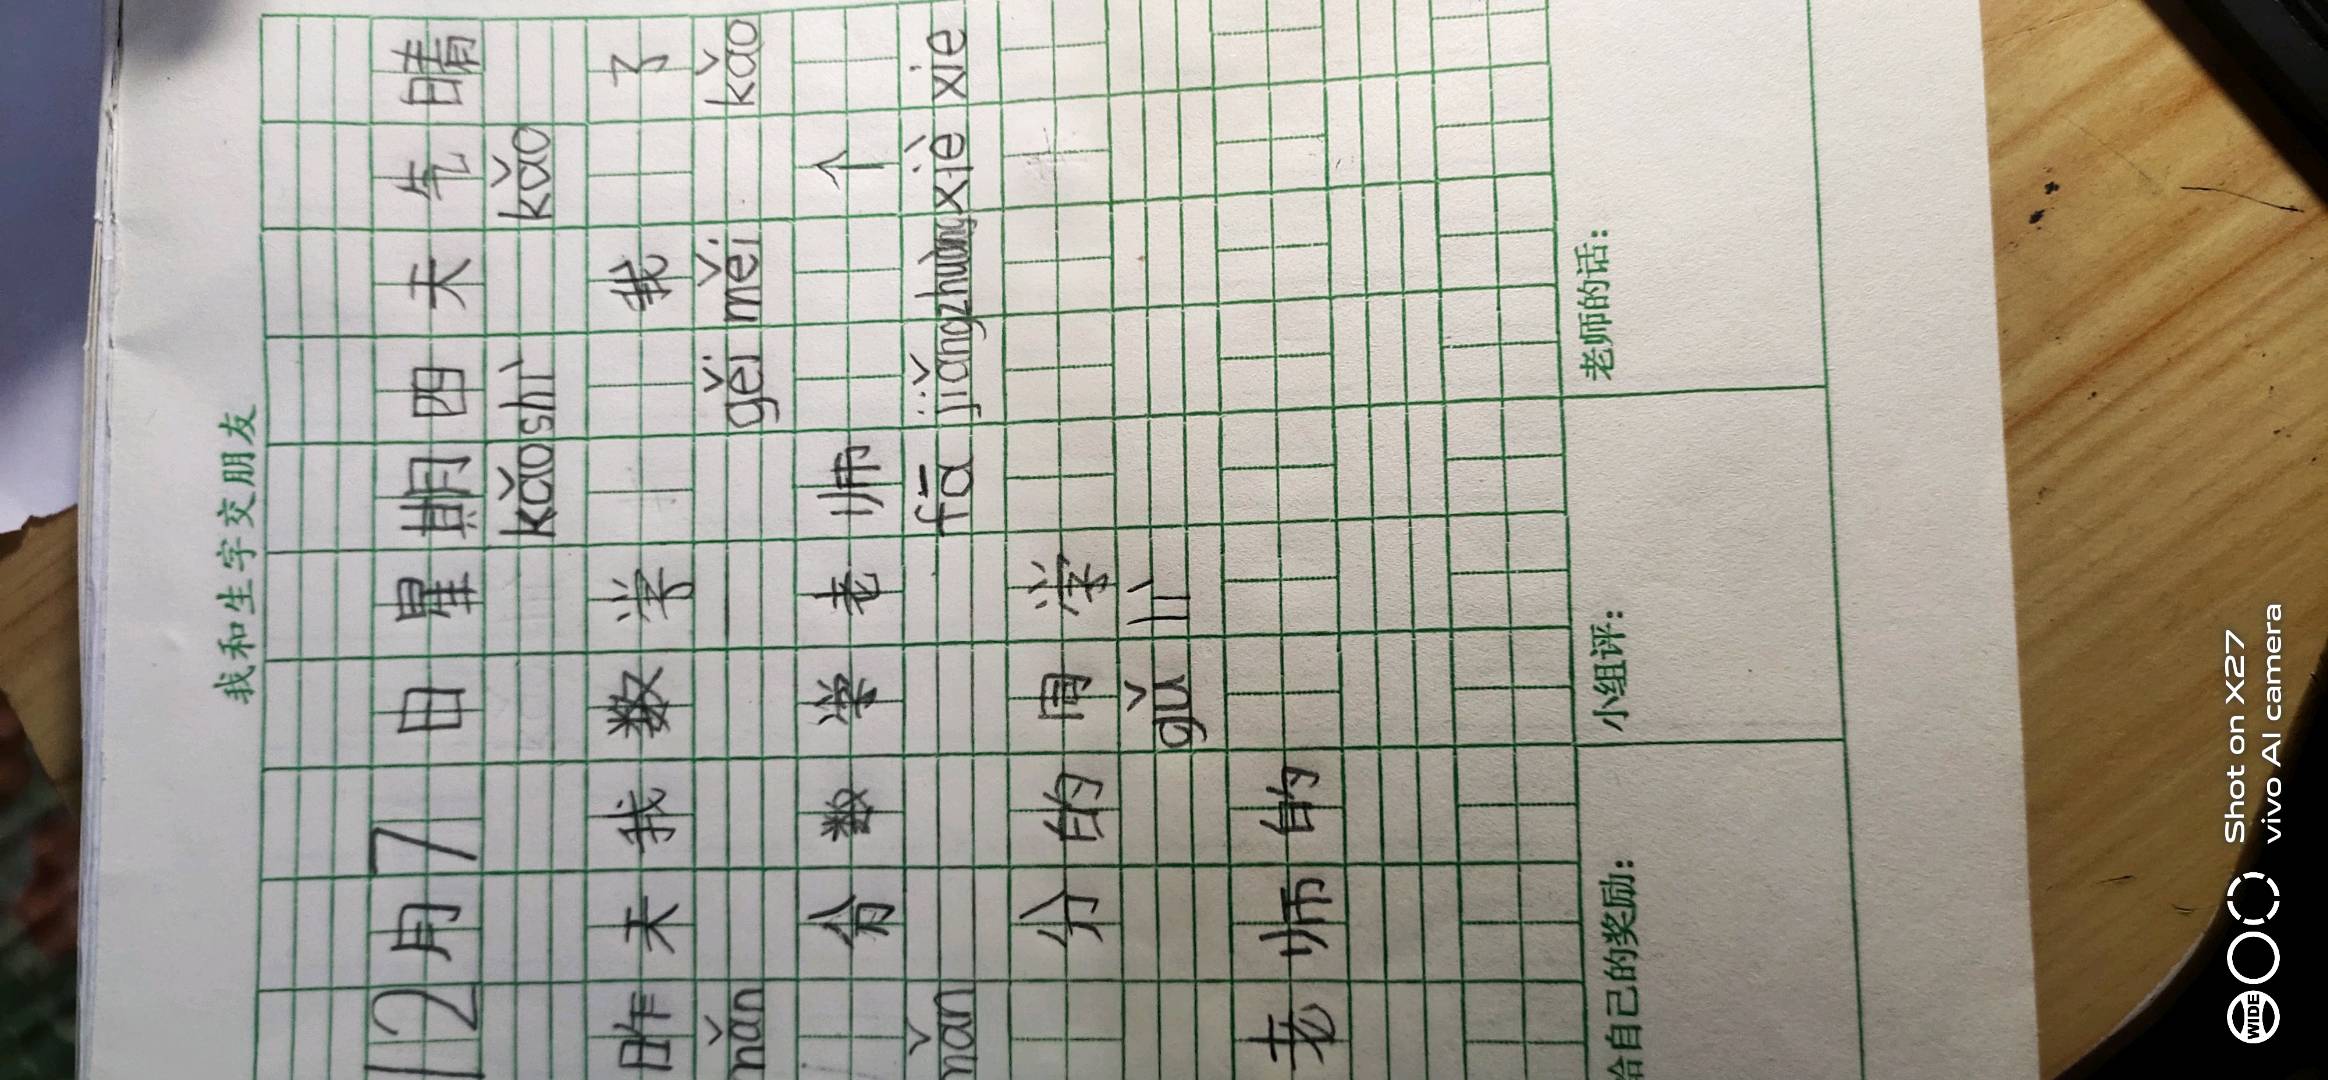 我和生字交朋友
12月7日星期四天气晴
kǎoshì kǎo
昨天我数学 我 了
mǎn gěi měi kǎo
分数学老师 个
mǎn fā jiǎngzhuàng xiè xie
分的同学
gǔ lì
老师的
给自己的奖励: 小组评: 老师的话:
Shot on X27
vivo AI camera
WIDE